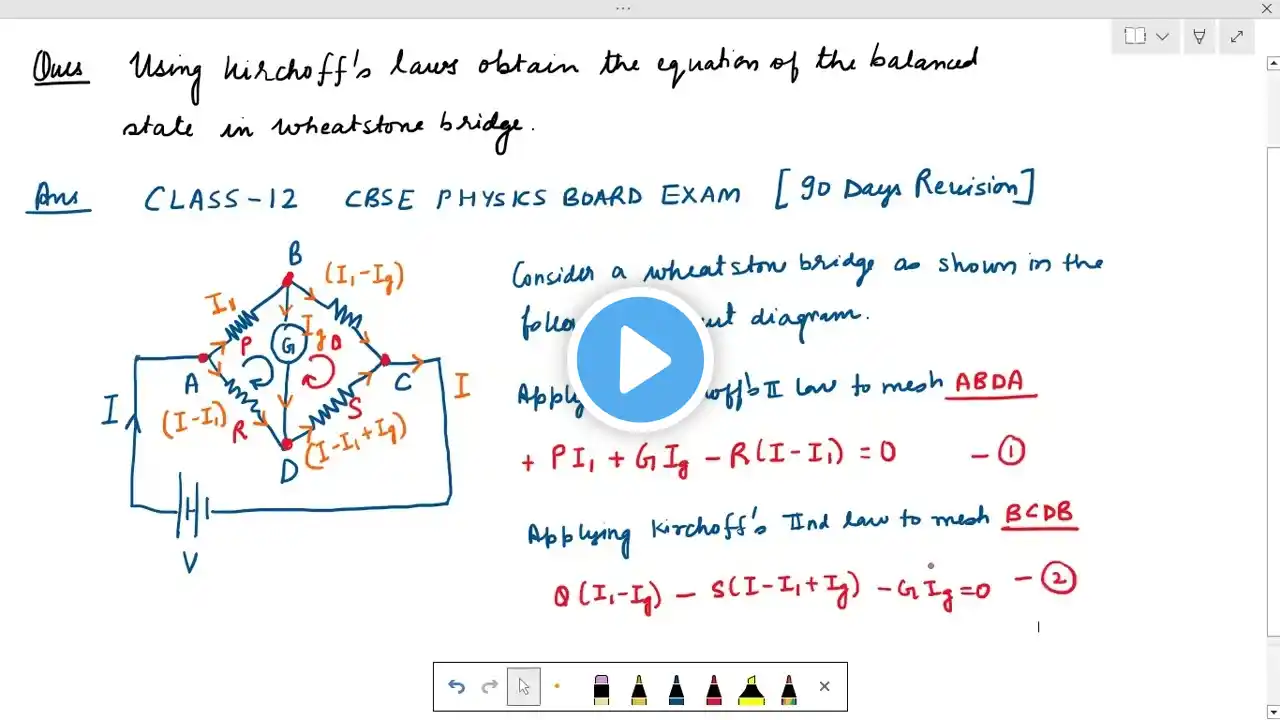 Ques Using Kirchoff's laws obtain the equation of the balanced
state in wheatstone bridge.
Ans CLASS-12 CBSE PHYSICS BOARD EXAM [90 Days Revision]
B
(I₁-Ig)
I₁
Ig
P
G
Q
A
C
I
I
(I-I₁)
R
S
(I-I₁+Ig)
D
V
Consider a wheatston bridge as shown in the
diagram.
II law to mesh ABDA
+ PI₁ + GIg - R(I-I₁) = 0 - ①
Applying Kirchoff's IInd law to mesh BCDB
Q(I₁-Ig) - S(I-I₁+Ig) - GIg=0 - ②